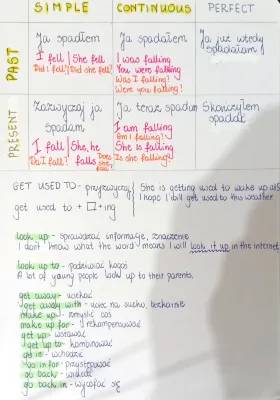 SIMPLE CONTINUOUS PERFECT
PAST
Ja spadłem
I fell / She fell
Did I fell? / Did she fell?
Ja spadałem
I was falling
You were falling
Was I falling?
Were you falling?
Ja już wtedy
spadałam
PRESENT
Zazwyczaj ja
spadam
I fall / She, he
Do I fall? falls
Does she
Ja teraz spadam
I am falling
Am I falling?
She is falling
Is she falling?
Skończyłem
spadać
GET USED TO - She is getting used to wake up at 5
I hope I will get used to this weather
get used to + □ + ing
look up - sprawdzać informacje, znaczenie
I don't know what the word means I will look it up in the internet
look up to - podziwiać kogoś
A lot of young people look up to their parents.
get away - uciekać
get away with - ujść na sucho, bezkarnie
make up - zmyślić coś
make up for - rekompensować
get up - wstawać
get up to - kombinować
go in - wchodzić
go in for - przystępować
go back -
go back in - wycofać się